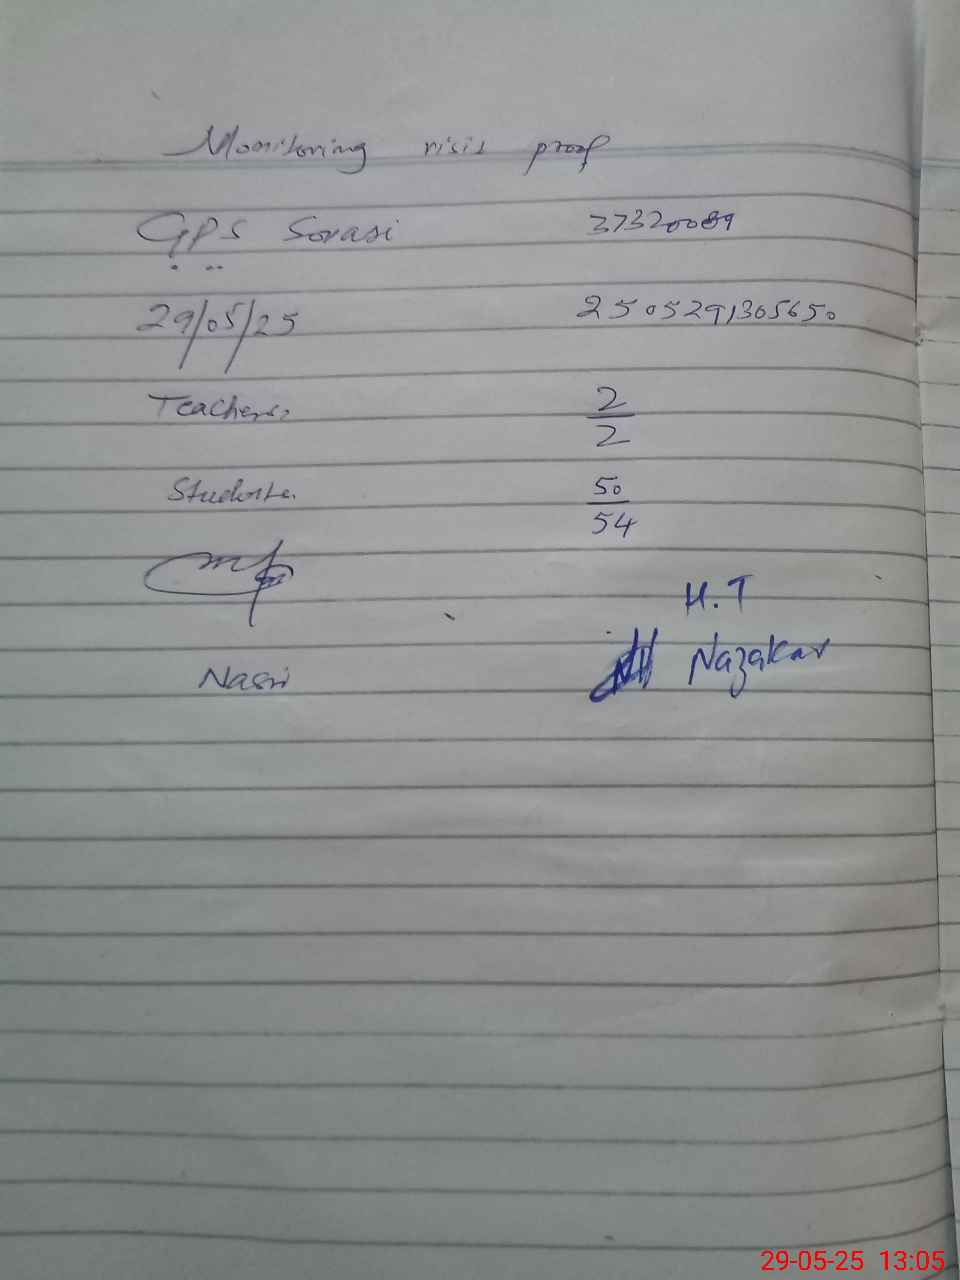 Monitoring visit proof
GPS Sorasi 37320089
29/05/25 2505291305650
Teachers 2/2
Students 50/54
H.T
Nasir Nazakat
29-05-25 13:05